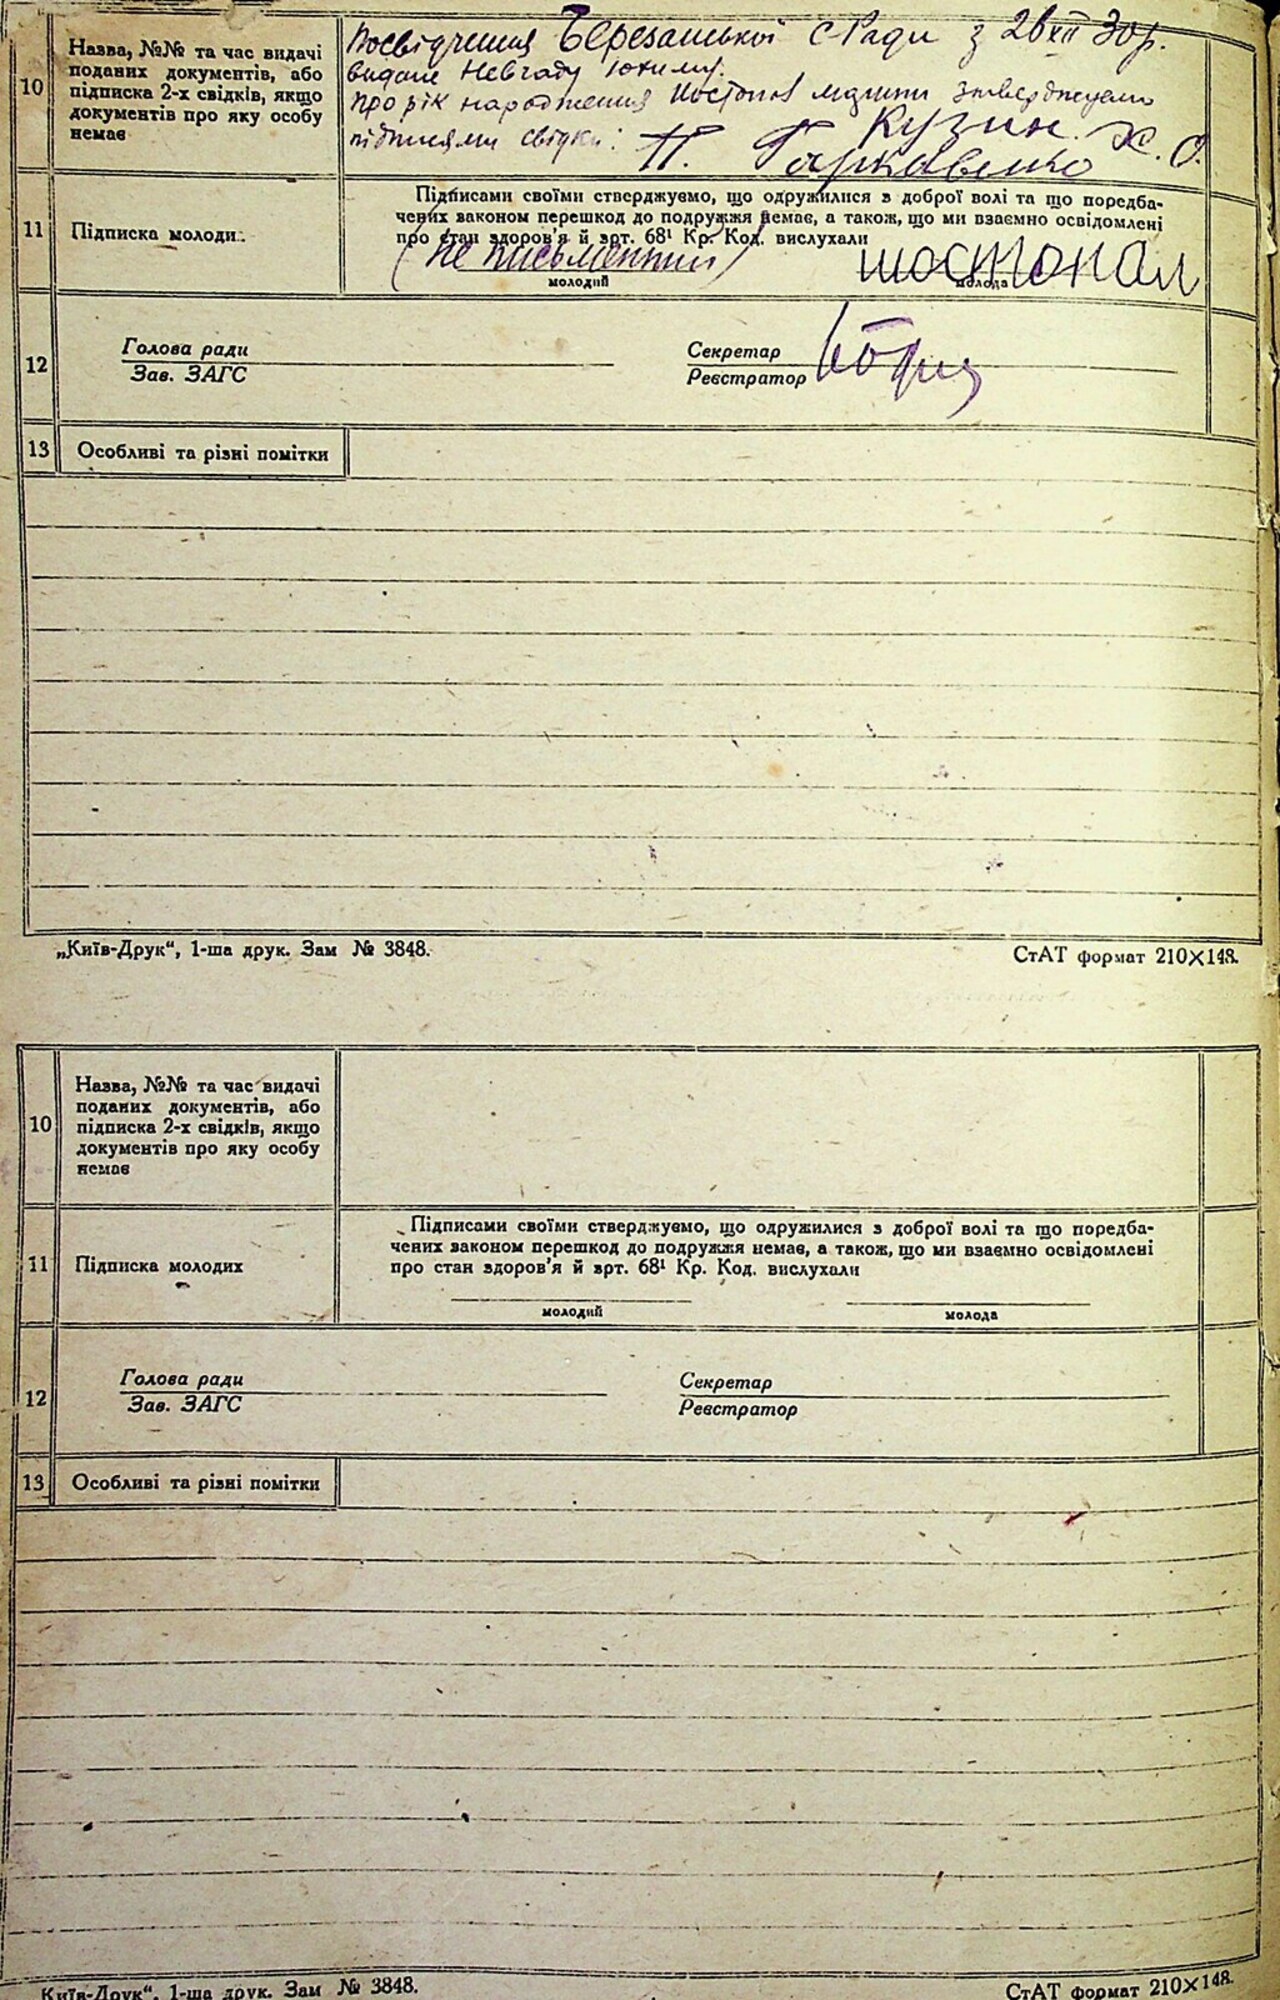 10
Назва, №№ та час видачі
поданих документів, або
підписка 2-х свідків, якщо
документів про яку особу
немає
Посвідчення Березанської с Ради з 28 XII 30 р.
видане Невгаду Юхиму.
про рік народження Шостопал стверджуємо
підписями свідки: Кузин. Х. О.
П. Гаркавенко
11
Підписка молоди
Підписами своїми стверджуємо, що одружилися з доброї волі та що поредба-
чених законом перешкод до подружжя немає, а також, що ми взаємно освідомлені
про стан здоров'я й арт. 68¹ Кр. Код. вислухали
(не письменний) шостопал
молодий молода
12
Голова ради
Зав. ЗАГС
Секретар
Реєстратор
13
Особливі та різні помітки
„Київ-Друк“, 1-ша друк. Зам № 3848.
СтАТ формат 210×148.
10
Назва, №№ та час видачі
поданих документів, або
підписка 2-х свідків, якщо
документів про яку особу
немає
11
Підписка молодих
Підписами своїми стверджуємо, що одружилися з доброї волі та що поредба-
чених законом перешкод до подружжя немає, а також, що ми взаємно освідомлені
про стан здоров'я й арт. 68¹ Кр. Код. вислухали
молодий молода
12
Голова ради
Зав. ЗАГС
Секретар
Реєстратор
13
Особливі та різні помітки
Київ-Друк“, 1-ша друк. Зам № 3848.
СтАТ формат 210×148.